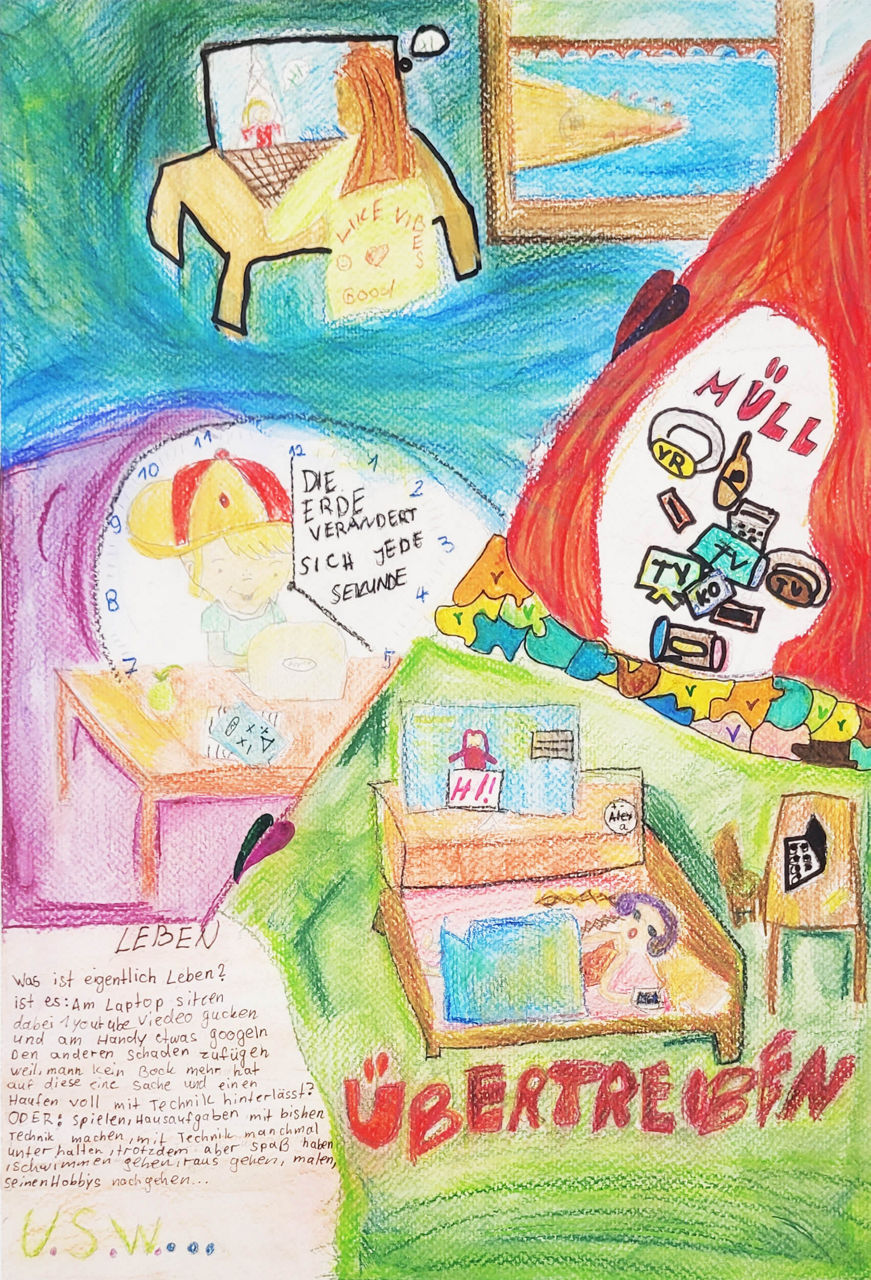 LIKE VIBES
GOOD
MÜLL
YR
TV
TV
KO
TV
11
12
1
10
2
9
3
8
4
7
5
DIE
ERDE
VERÄNDERT
SICH JEDE
SEKUNDE
Y
Y
Y
V
Y
V
HI!!
Alex
a
LEBEN
Was ist eigentlich Leben?
ist es: Am Laptop sitzen
dabei 1 youtube Viedeo gucken
und am Handy etwas googeln
Den anderen schaden zufügen
weil, mann kein Bock mehr hat
auf diese eine Sache und einen
Haufen voll mit Technik hinterlässt?
ODER: spielen, Hausaufgaben mit bishen
Technik machen, mit Technik manchmal
unterhalten, trotzdem aber spaß haben
, schwimmen gehen, raus gehen, malen,
seinen Hobbys nachgehen...
U.S.W....
ÜBERTREIBEN